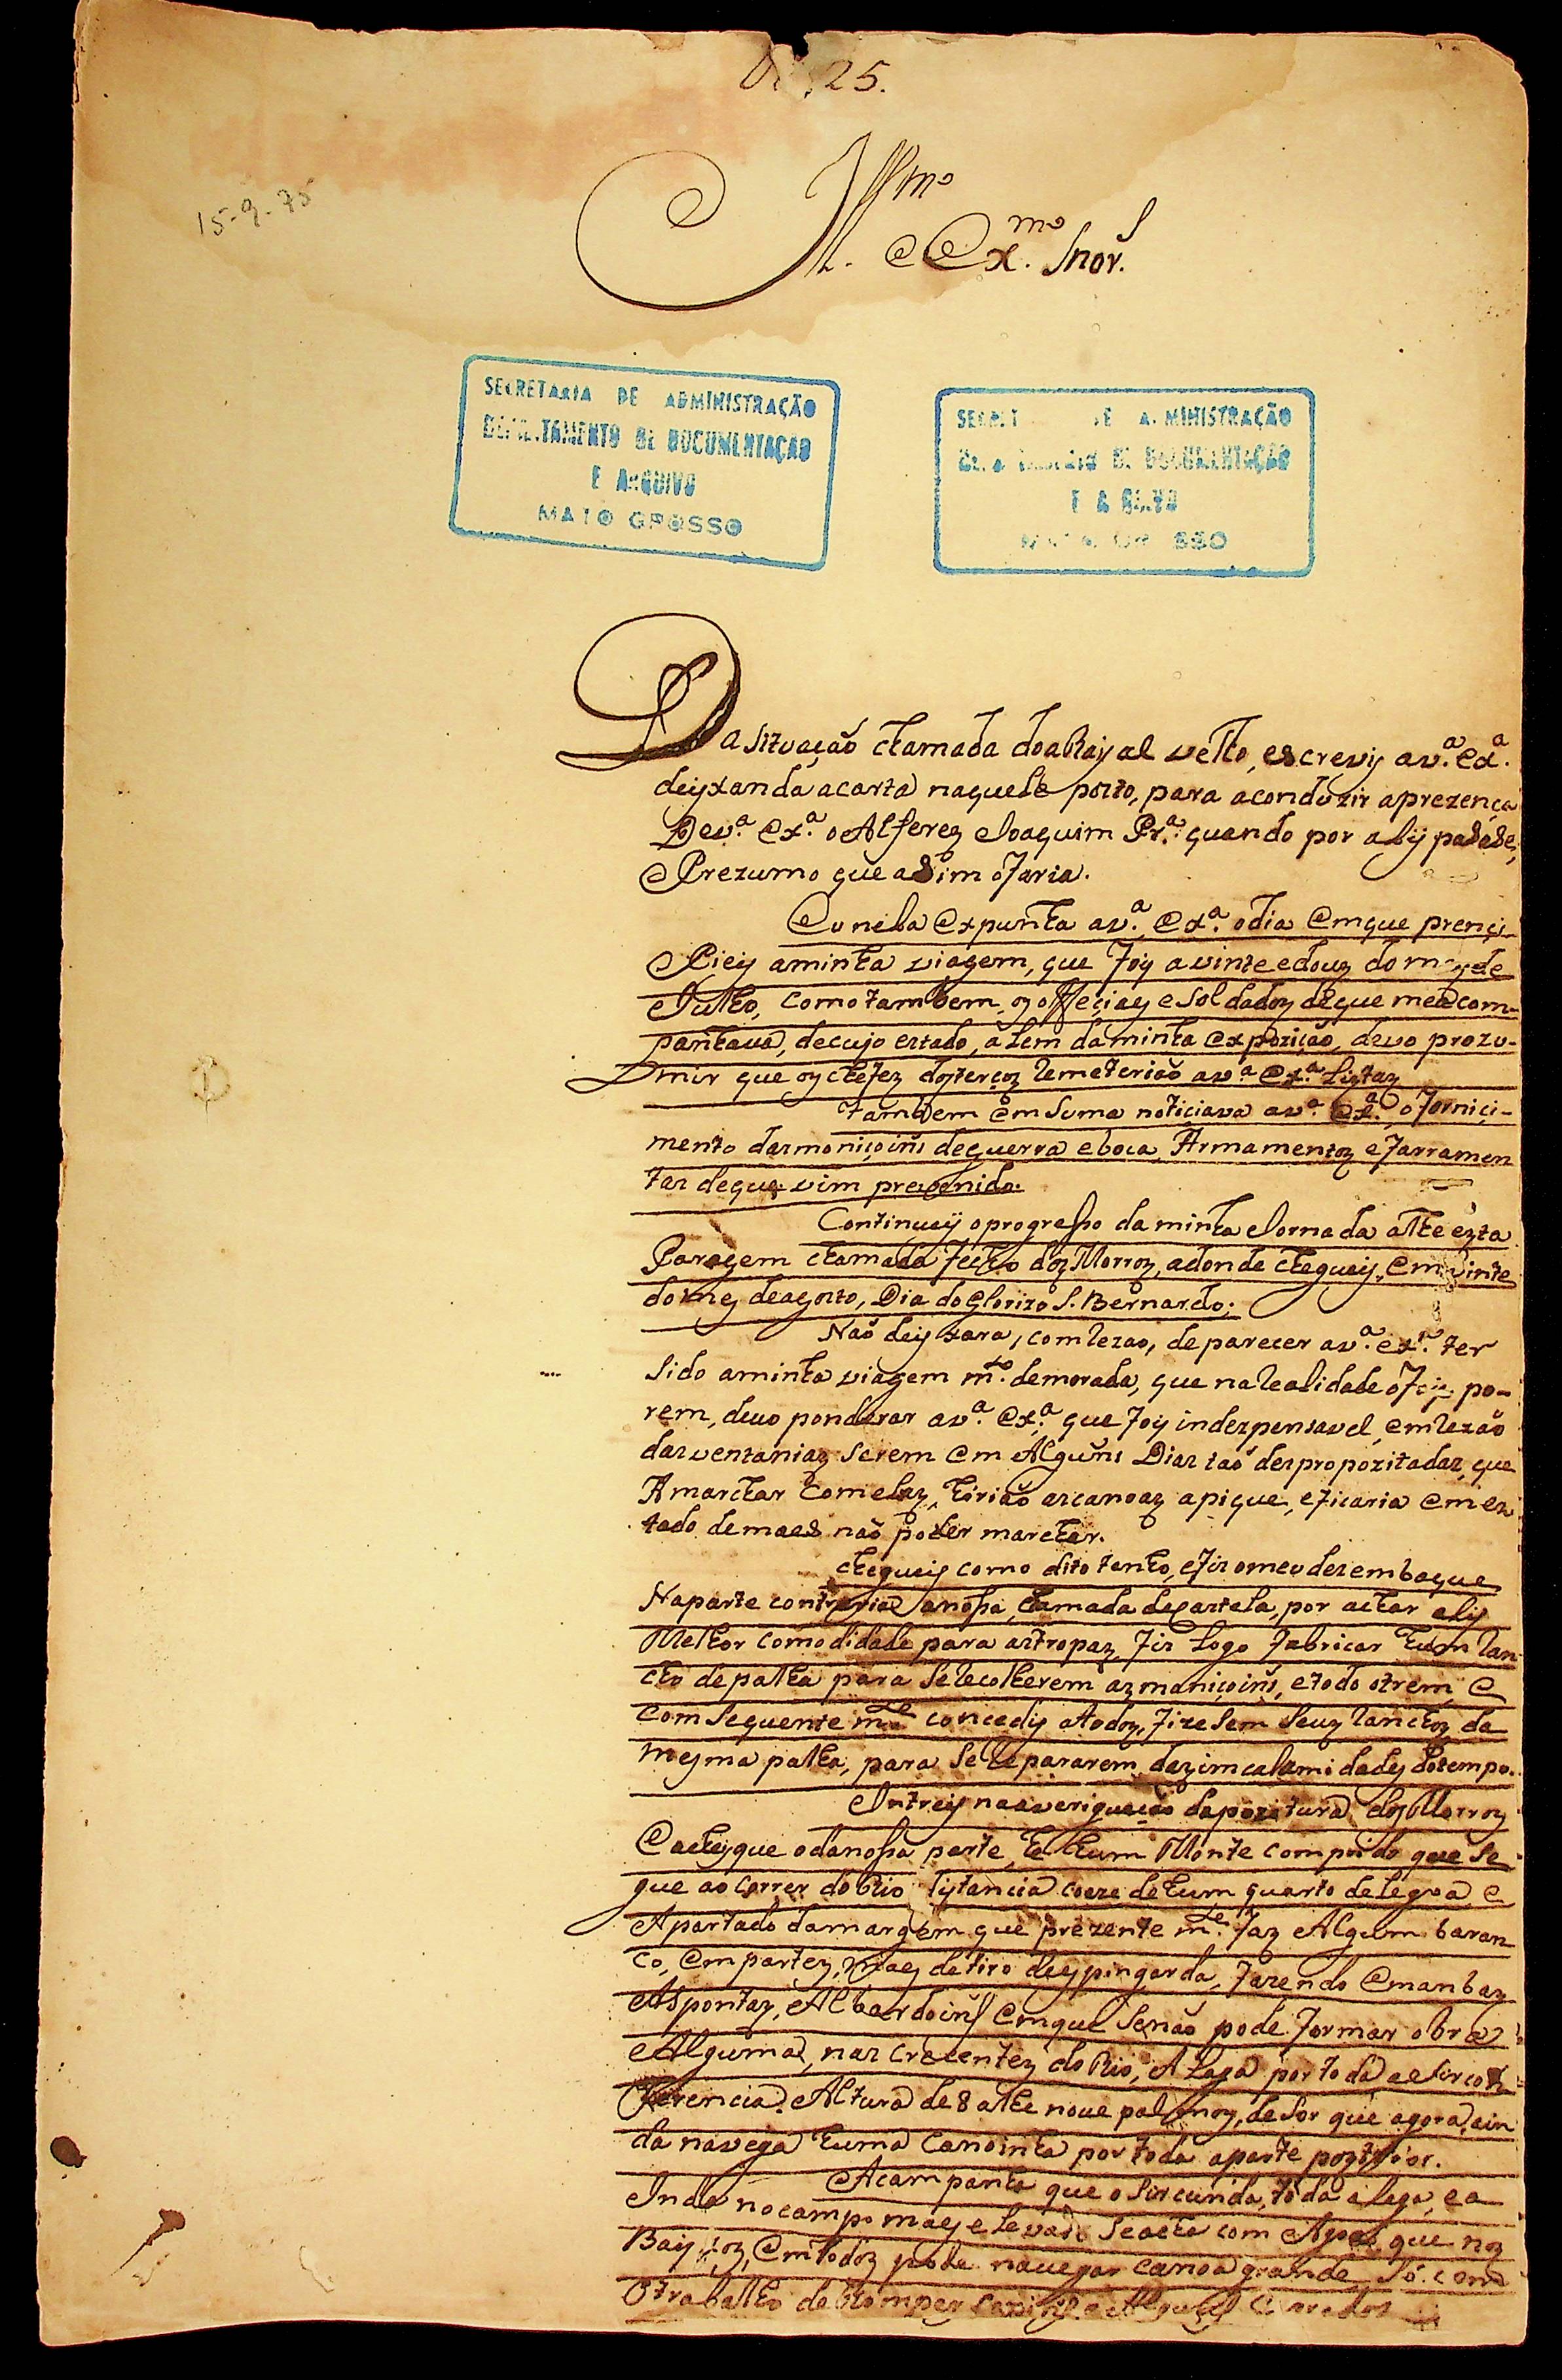 25.
15-9-75
Ill.mo
e Ex.mo Snor.
SECRETARIA DE ADMINISTRAÇÃO
DEPARTAMENTO DE DOCUMENTAÇÃO
E ARQUIVO
MATO GROSSO
SECRET DE A MINISTRAÇÃO
DE DOCUMENTAÇÃO
SSO
Da Situação chamada doaRayal velho, escrevy av.a Ex.a
deyxanda acarta naquele porto, para aconduzir aprezença
Dev.a Ex.a o Alferez Joaquim Pr.a quando por aly pasase,
e Prezumo que asim o faria.
Eu nela Expunha av.a Ex.a odia Emque prençi-
Piey aminha viagem, que foy avinte edouz do mez de
Julho, como tambem, oz offeçiaes e Soldadoz deque meacom-
panhava, decujo estado, alem daminha Expozição, devo prozu-
mir que oz chefez dozterçoz Remeterião av.a Ex.a Liztaz
tambem Em Suma notiçiava av.a Ex.a o forniçi-
mento dazmoniçoins deguerra eboca, Armamentoz e farramen
taz deque vim prevenido.
Continuey oprogresso da minha Jornada athe ezta
Paragem chamada fecho doz Morroz, adonde cheguey, Em vinte
do mez deagosto, Dia do Glorizo S. Bernardo;
Não deyxara, com Rezao, de parecer av.a Ex.a ter
Sido aminha viagem m.to demorada, que na Realidade o foy, po-
rem, devo ponderar av.a Ex.a que foy indezpensavel, em Rezão
dazventaniaz Serem Em Alguns Diaz tão dezpropozitadaz, que
A marchar Comelaz, hirião azcanoaz apique, eficaria Em ez
tado demaes não poder marchar.
cheguey como dito tenho, e fiz omeu dezembaque
Naparte contraria anossa, chamada decastela, por achar aly
Melhor comodidade para aztropaz, fiz Logo fabricar hum Ran
cho depalha para Se Recolherem azmoniçoins, etodo otrem, e
Com Sequente m.te concedy atodoz, fizesem Seuz Ranchoz da
mesma palha, para Se Repararem, dazimcalamidadez dotempo.
Entrey naaveriguação dapozetura doz Morroz
E acheyque odanossa parte, he hum Monte comprido que Se
gue ao correr do Rio distancia coaze de hum quarto de legoa e
Apartado damargem que prezente m.te faz Algum baran
co, Em partez, maez detiro deezpingarda, fazendo Emanbaz
Aspontaz, Albardoins Emque Senão pode formar obra
Alguma, naz crecentez do Rio, Alaga por toda asircon
ferencia. Altura de 8 athe nove palmoz, desor que agora, ain
da navega huma Canoinha por toda aparte pozterior.
Acampanha que o Sircunda, toda alaga, ea
Inda nocampo maez elevado Seacha com Agoa, que noz
Bayxoz, Emtodoz pode navegar canoa grande, Só. com o
o trabalho de Romper Capins e Alguns